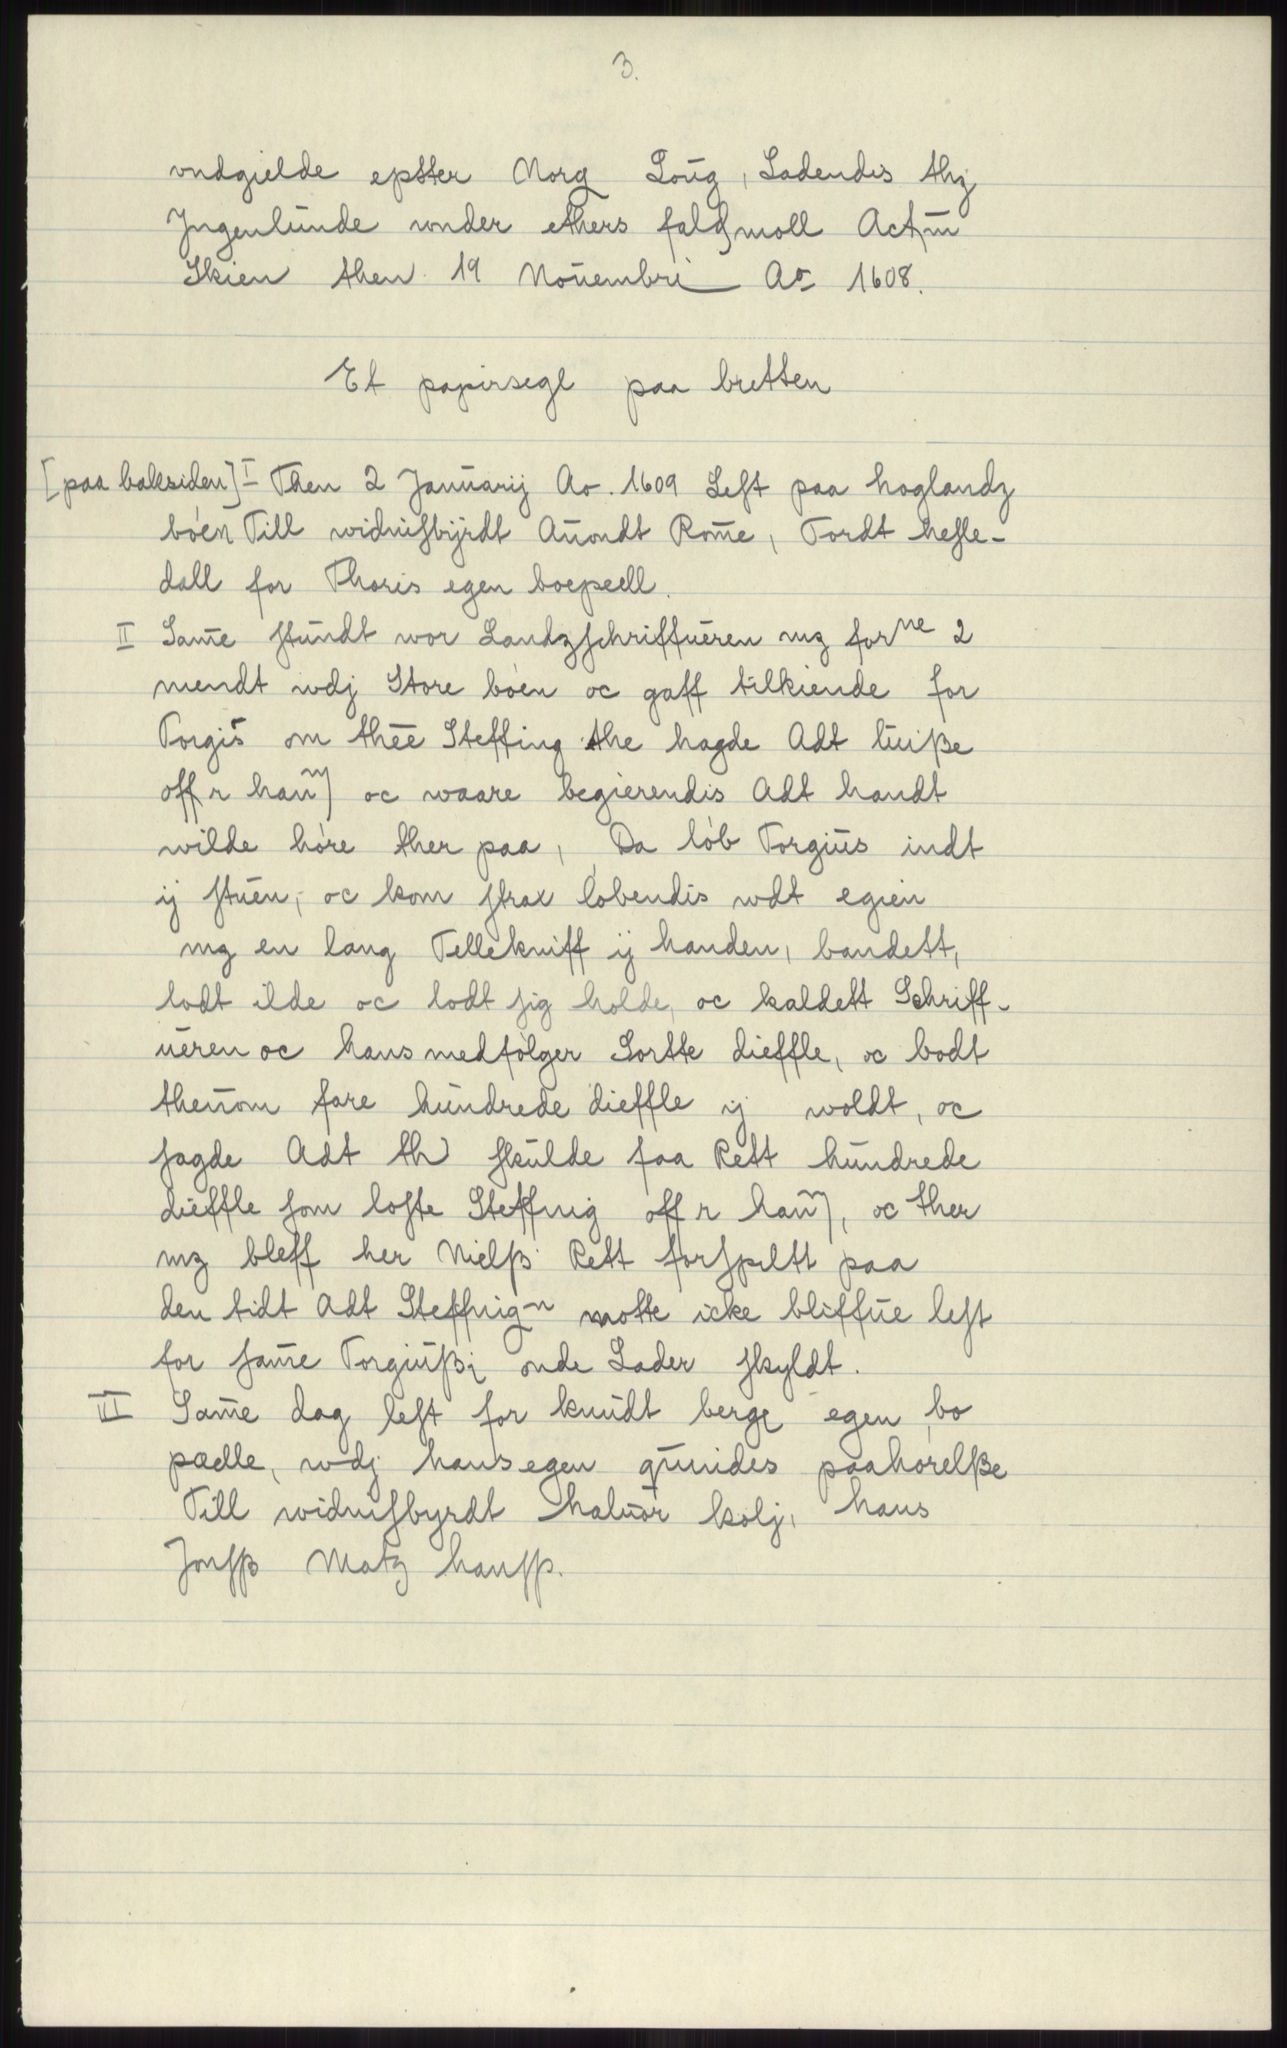 3.
vndgielde epther Norg Loug, Ladendis thz
Jngenlunde vnder ethers falsmoll Actum
Skien then 19 Nouembri Ao 1608.
Et papirsegl paa bretten
[paa baksiden] I Then 2 Januarij Ao. 1609 Lest paa hoglandz
bóen Till widnisbyrdt Auondt Rome, Tordt hesle-
dall for Thoris egen boepeell.
II Same stundt wor Landzschriffueren mz forne 2
mendt wdj Store bóen oc gaff tilkiende for
Torgis om thee Steffing the hagde Adt luiße
offr han oc waare begierendis Adt handt
wilde hóre ther paa, Da lób Torgius indt
ij stuen, oc kom strax lobendis wdt egien
mz en lang Tellekniff ij handen, bandett,
lodt ilde oc lodt sig holde, oc kaldett Schriff-
ueren oc hans medfolger Sortte dieffle, oc bodt
thenom fare hundrede dieffle ij woldt, oc
sagde Adt th skulde faa Rett hundrede
dieffle som loste Steffnig offr han, oc ther
mz bleff her Nielß Rett forspiltt paa
den tidt Adt Steffnign motte icke bliffue lest
for same Torgiußj onde Lader skyldt.
III Same dag lest for knudt berge egen bo
pælle, wdj hans egen quindes paahórelße
Till widnisbyrdt haluor kolj, hans
Jonsß Matz hansß.